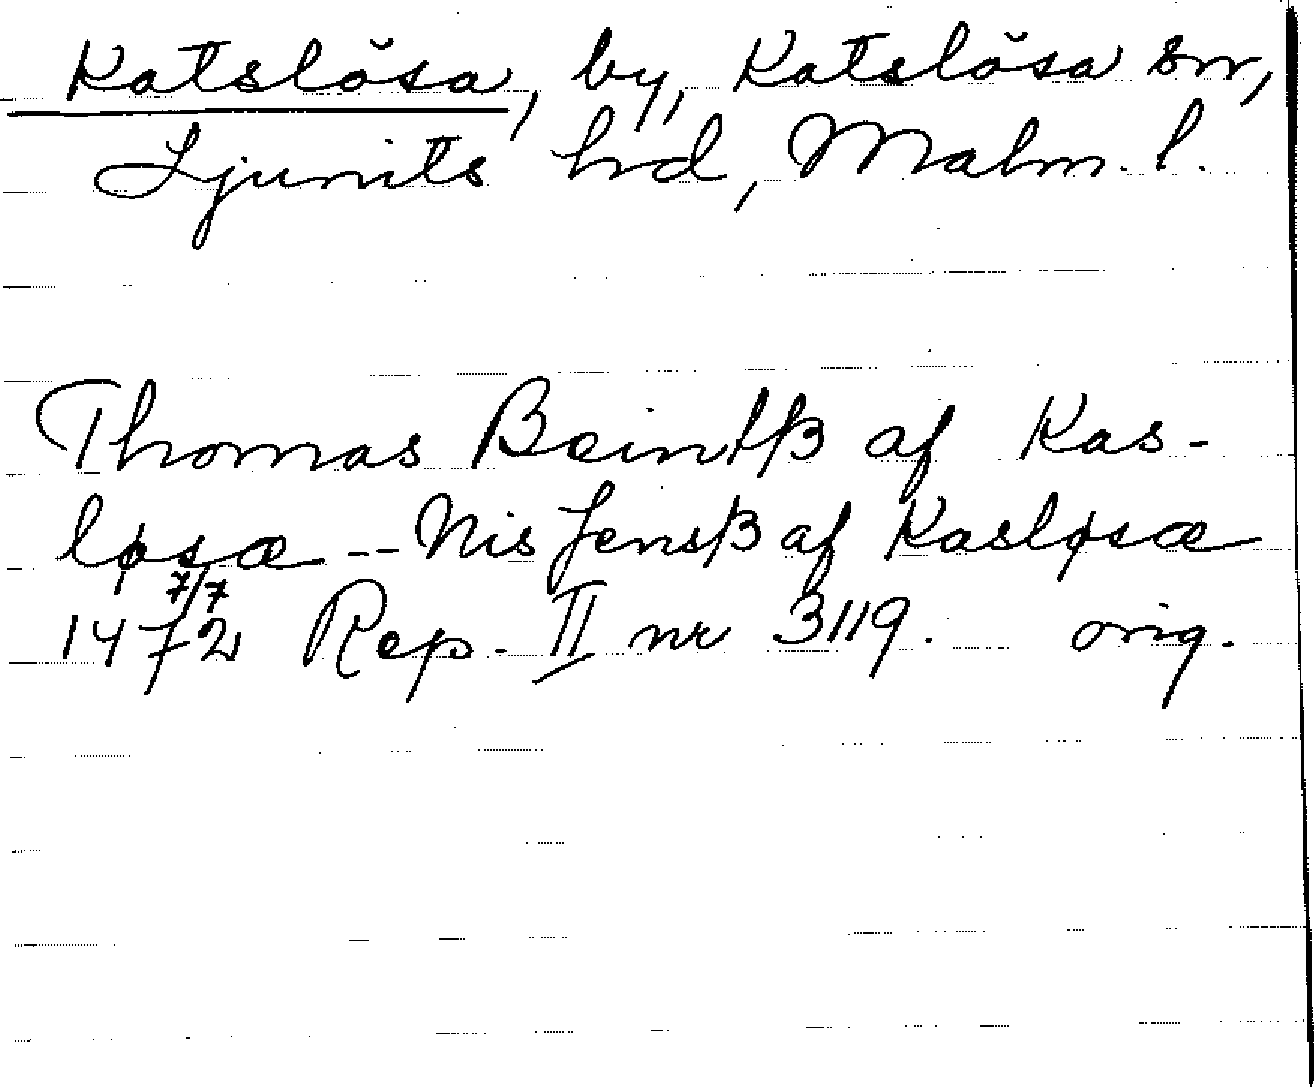 Katslösa, by, Katslösa sn,
Ljunits hd, Malm. l.
Thomas Beintß af Kas-
løsæ -- Nis Jensß af Kasløsæ
7/7
1472 Rep. II nr 3119. orig.